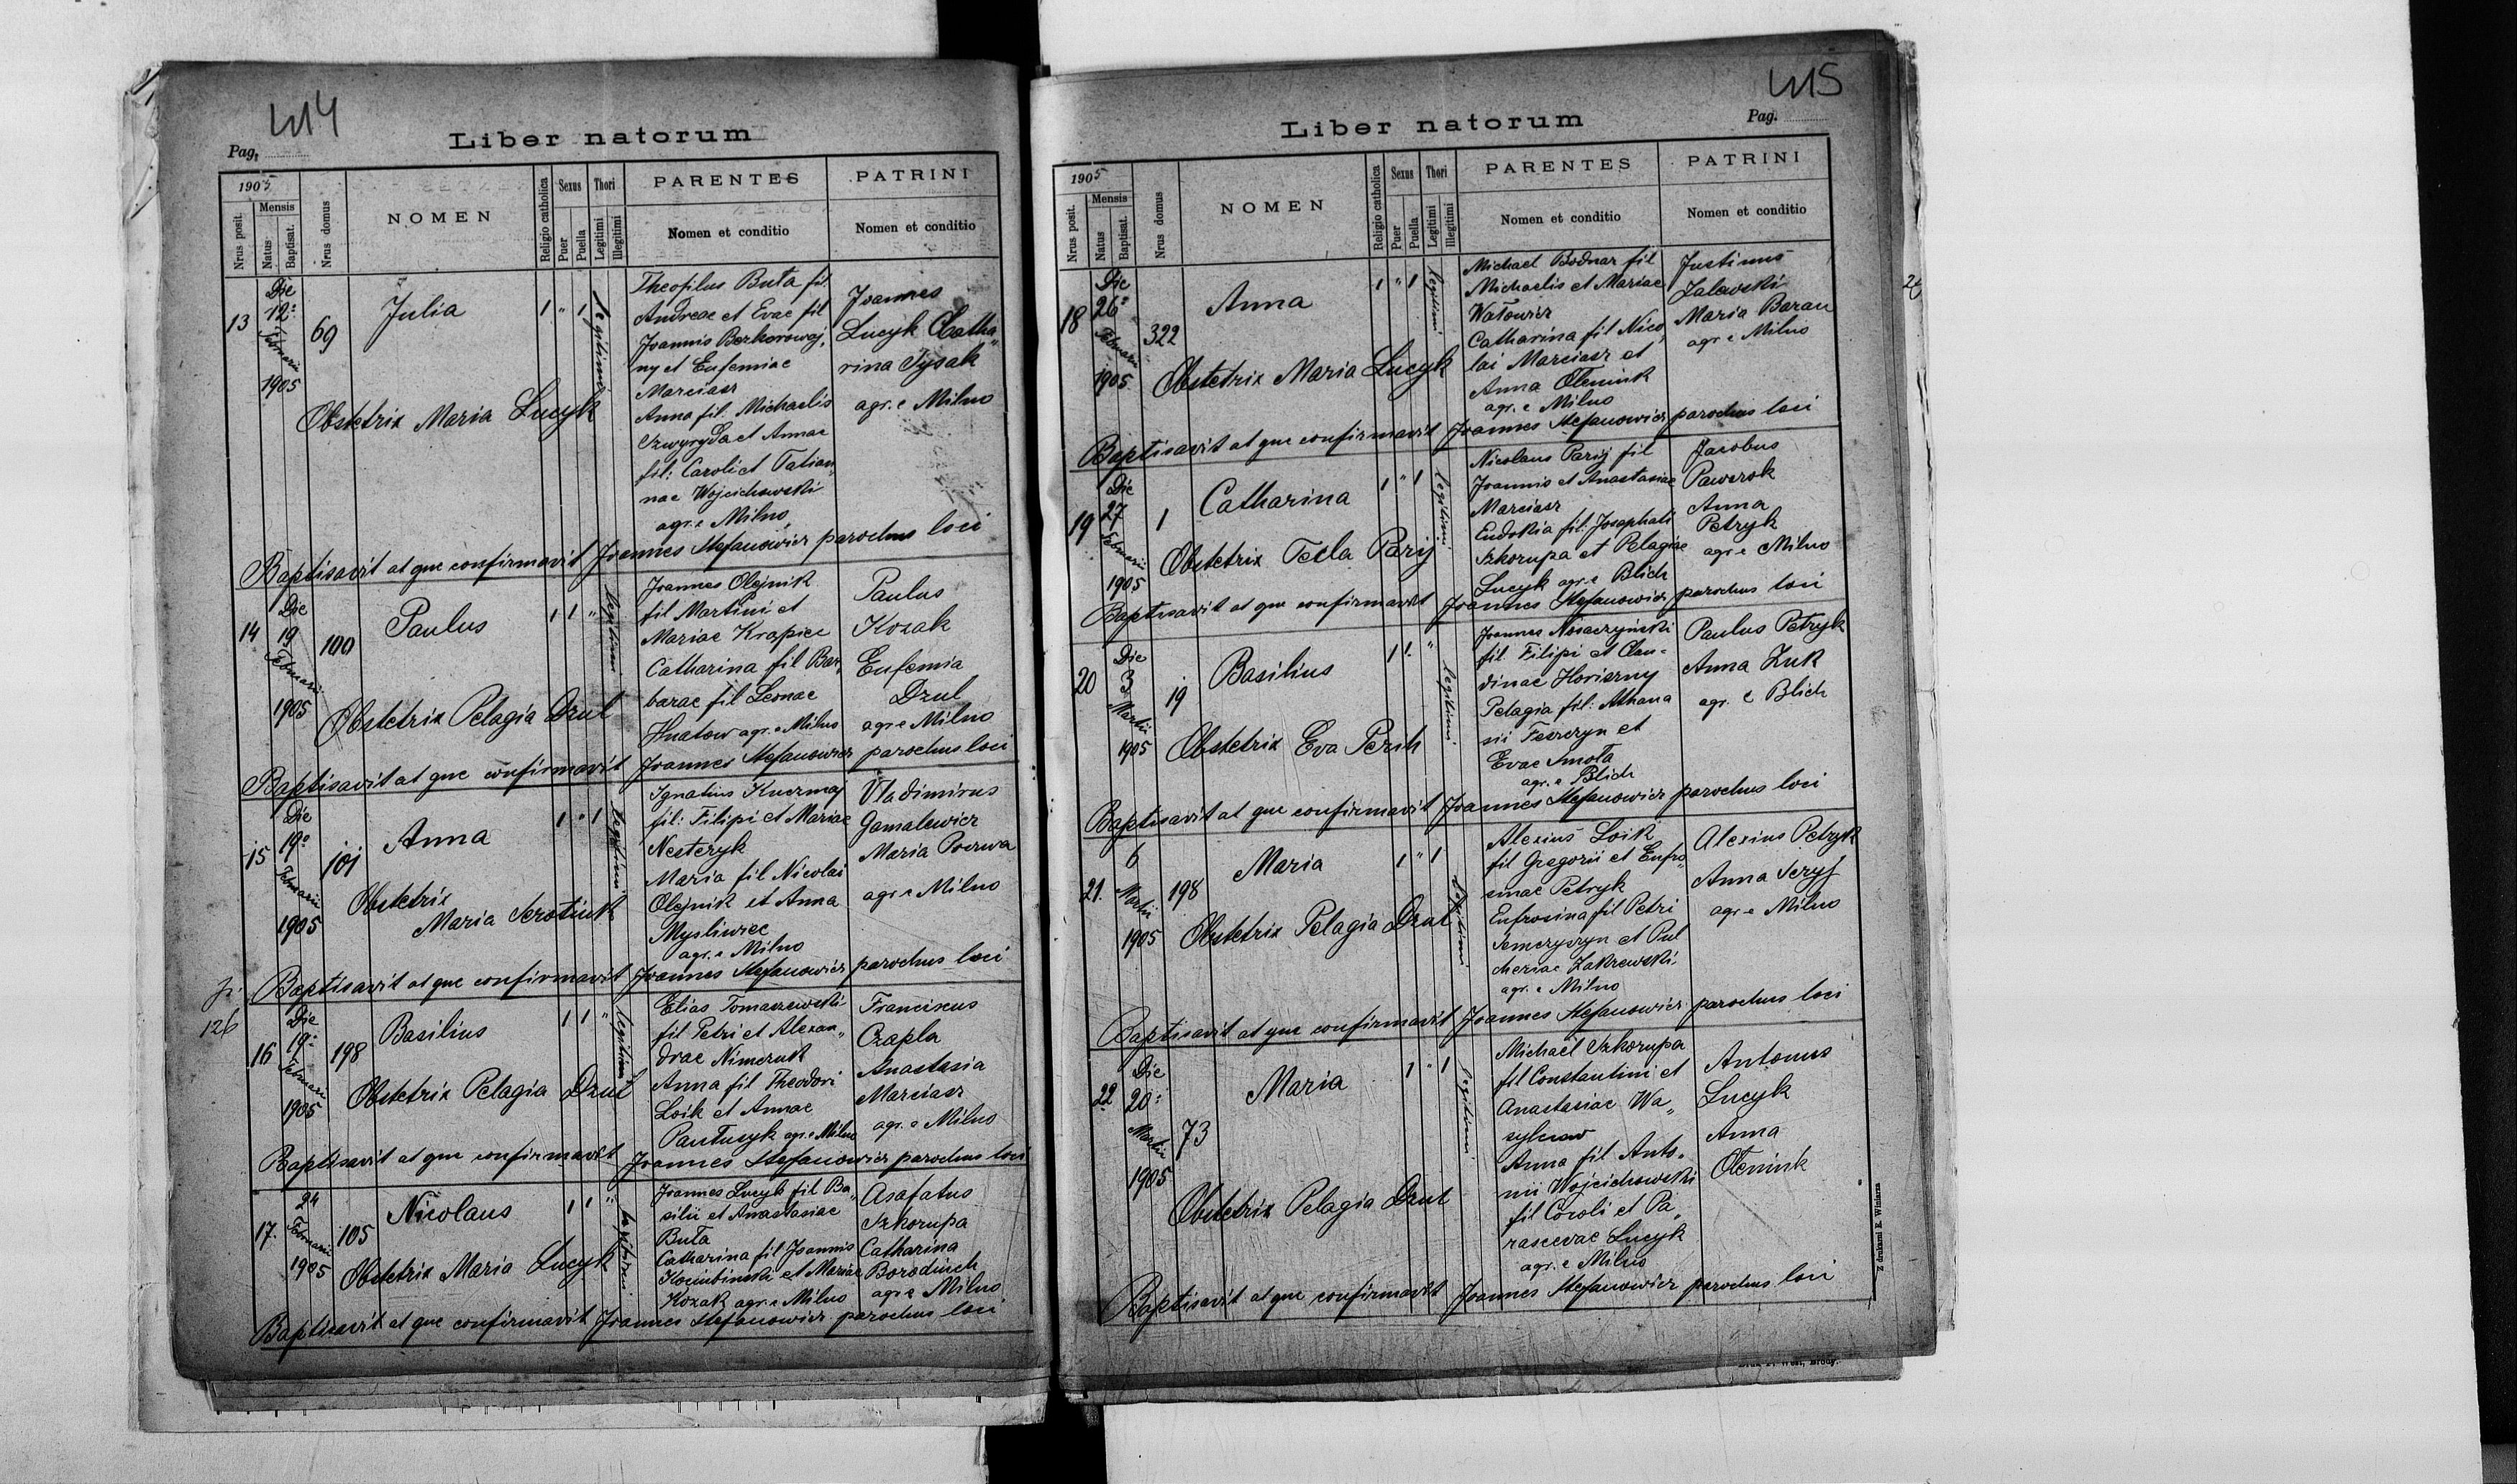 414
Pag.
Liber natorum
1905
Nrus posit.
Mensis
Natus
Baptisat.
Nrus domus
NOMEN
Religio catholica
Sexus
Puer
Puella
Thori
Legitimi
Illegitimi
PARENTES
Nomen et conditio
PATRINI
Nomen et conditio
13
Die
12
Februarii
1905
69
Julia
1 " 1
legitimi
Obstetrix Maria Lucyk
Theofilus Buta fil.
Andreae et Evae fil
Joannis Bezkorowaj,
ny et Eufemiae
Marciasz
Anna fil. Michaelis
Czwyryda et Annae
fil: Caroli et Tatian,
nae Wojcichowski
agr. e Milno
Joannes
Lucyk Catha,
rina Tysak
agr. e Milno
Baptisavit at que confirmavit Joannes Stefanowicz parochus loci
14
Die
19
Februarii
1905
100
Paulus
1 1 "
legitimi
Obstetrix Pelagia Dzul
Joannes Olejnik
fil Martini et
Mariae Krapiec
Catharina fil Bar,
barae fil Leonae
Hnatow agr. e Milno
Paulus
Kozak
Eufemia
Dzul
agr e Milno
Baptisavit at que confirmavit Joannes Stefanowicz parochus loci
15
Die
19
Februarii
1905
101
Anna
1 " 1
legitimi
Obstetrix
Maria Serotiuk
Ignatius Kuczmaj
fil: Filipi et Mariae
Nesteryk
Maria fil Nicolai
Olejnik et Anna
Mysliwiec
agr. e Milno
Vladimirus
Gamalewicz
Maria Poczwa
agr e Milno
Baptisavit at que confirmavit Joannes Stefanowicz parochus loci
126
16
Die
19
Februarii
1905
198
Basilius
1 1 "
legitimi
Obstetrix Pelagia Dzul
Elias Tomaszewski
fil Petri et Alexan,,
drae Nimczuk
Anna fil Theodori
Loik et Annae
Pantusyk agr. e Milno
Franciscus
Czapla
Anastasia
Marciasz
agr. e Milno
Baptisavit at que confirmavit Joannes Stefanowicz parochus loci
17.
24
Februarii
1905
105
Nicolaus
1 1 "
legitimi
Obstetrix Maria Lucyk
Joannes Lucyk fil Ba,,
silii et Anastasiae
Buta
Catharina fil Joannis
et Mariae
Kozak agr. e Milno
Asafatus
Szkorupa
Catharina
Borodiuch
agr e Milno
Baptisavit at que confirmavit Joannes Stefanowicz parochus loci
415
Pag.
Liber natorum
1905
Nrus posit.
Mensis
Natus
Baptisat.
Nrus domus
NOMEN
Religio catholica
Sexus
Puer
Puella
Thori
Legitimi
Illegitimi
PARENTES
Nomen et conditio
PATRINI
Nomen et conditio
18
Die
26
Februarii
1905
322
Anna
1 " 1
legitimi
Obstetrix Maria Lucyk
Michael Bodnar fil
Michaelis et Mariae
Watowicz
Catharina fil Nico,
lai Marciasz et
Anna Olenink
agr. e Milno
Justinus
Zalewski
Maria Baran
agr e Milno
Baptisavit at que confirmavit Joannes Stefanowicz parochus loci
19
Die
27
Februarii
1905
1
Catharina
1 " 1
legitimi
Obstetrix Tecla Parij
Nicolaus Parij fil
Joannis et Anastasiae
Marciasz
Eudokia fil: Josaphati
Szkorupa et Pelagiae
Lucyk agr. e Blich
Jacobus
Pawczok
Anna
Petryk
agr e Milno
Baptisavit at que confirmavit Joannes Stefanowicz parochus loci
20
Die
3
Martii
1905
19
Basilius
1 1 "
legitimi
Obstetrix Eva Perih
Joannes Nosaczyński
fil Filipi et Clau-
dinae Horiszny
Pelagia fil: Athana
sii Fesczyn et
Evae Smota
agr. e Blich
Paulus Petryk
Anna Zuk
agr. e Blich
Baptisavit at que confirmavit Joannes Stefanowicz parochus loci
21.
6
Martii
1905
198
Maria
1 " 1
legitimi
Obstetrix Pelagia Dzul
Alexius Loik
fil Gregorii et Eufro,
sinae Petryk
Eufrosina fil Petri
Semczyszyn et Pul
cheriae Zakrewski
agr. e Milno
Alexius Petryk
Anna Seryj
agr e Milno
Baptisavit at que confirmavit Joannes Stefanowicz parochus loci
22
Die
20
Martii
1905
73
Maria
1 " 1
legitimi
Obstetrix Pelagia Dzul
Michael Szkorupa
fil Constantini et
Anastasiae Wa,,
sylciow
Anna fil Anto,
nii Wojcichowski
fil Coroli et Pa,,
rascevae Lucyk
agr. e Milno
Antonus
Lucyk
Anna
Olenink
Baptisavit at que confirmavit Joannes Stefanowicz parochus loci
Z drukarni R. Wintera